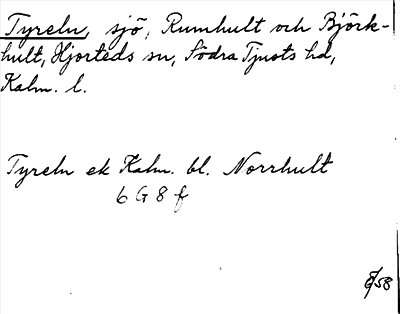 Tyreln, sjö, Rumhult och Björk-
hult, Hjorteds sn, Södra Tjusts hd,
Kalm. l.
Tyreln ek Kalm. bl. Norrhult
6 G 8 f